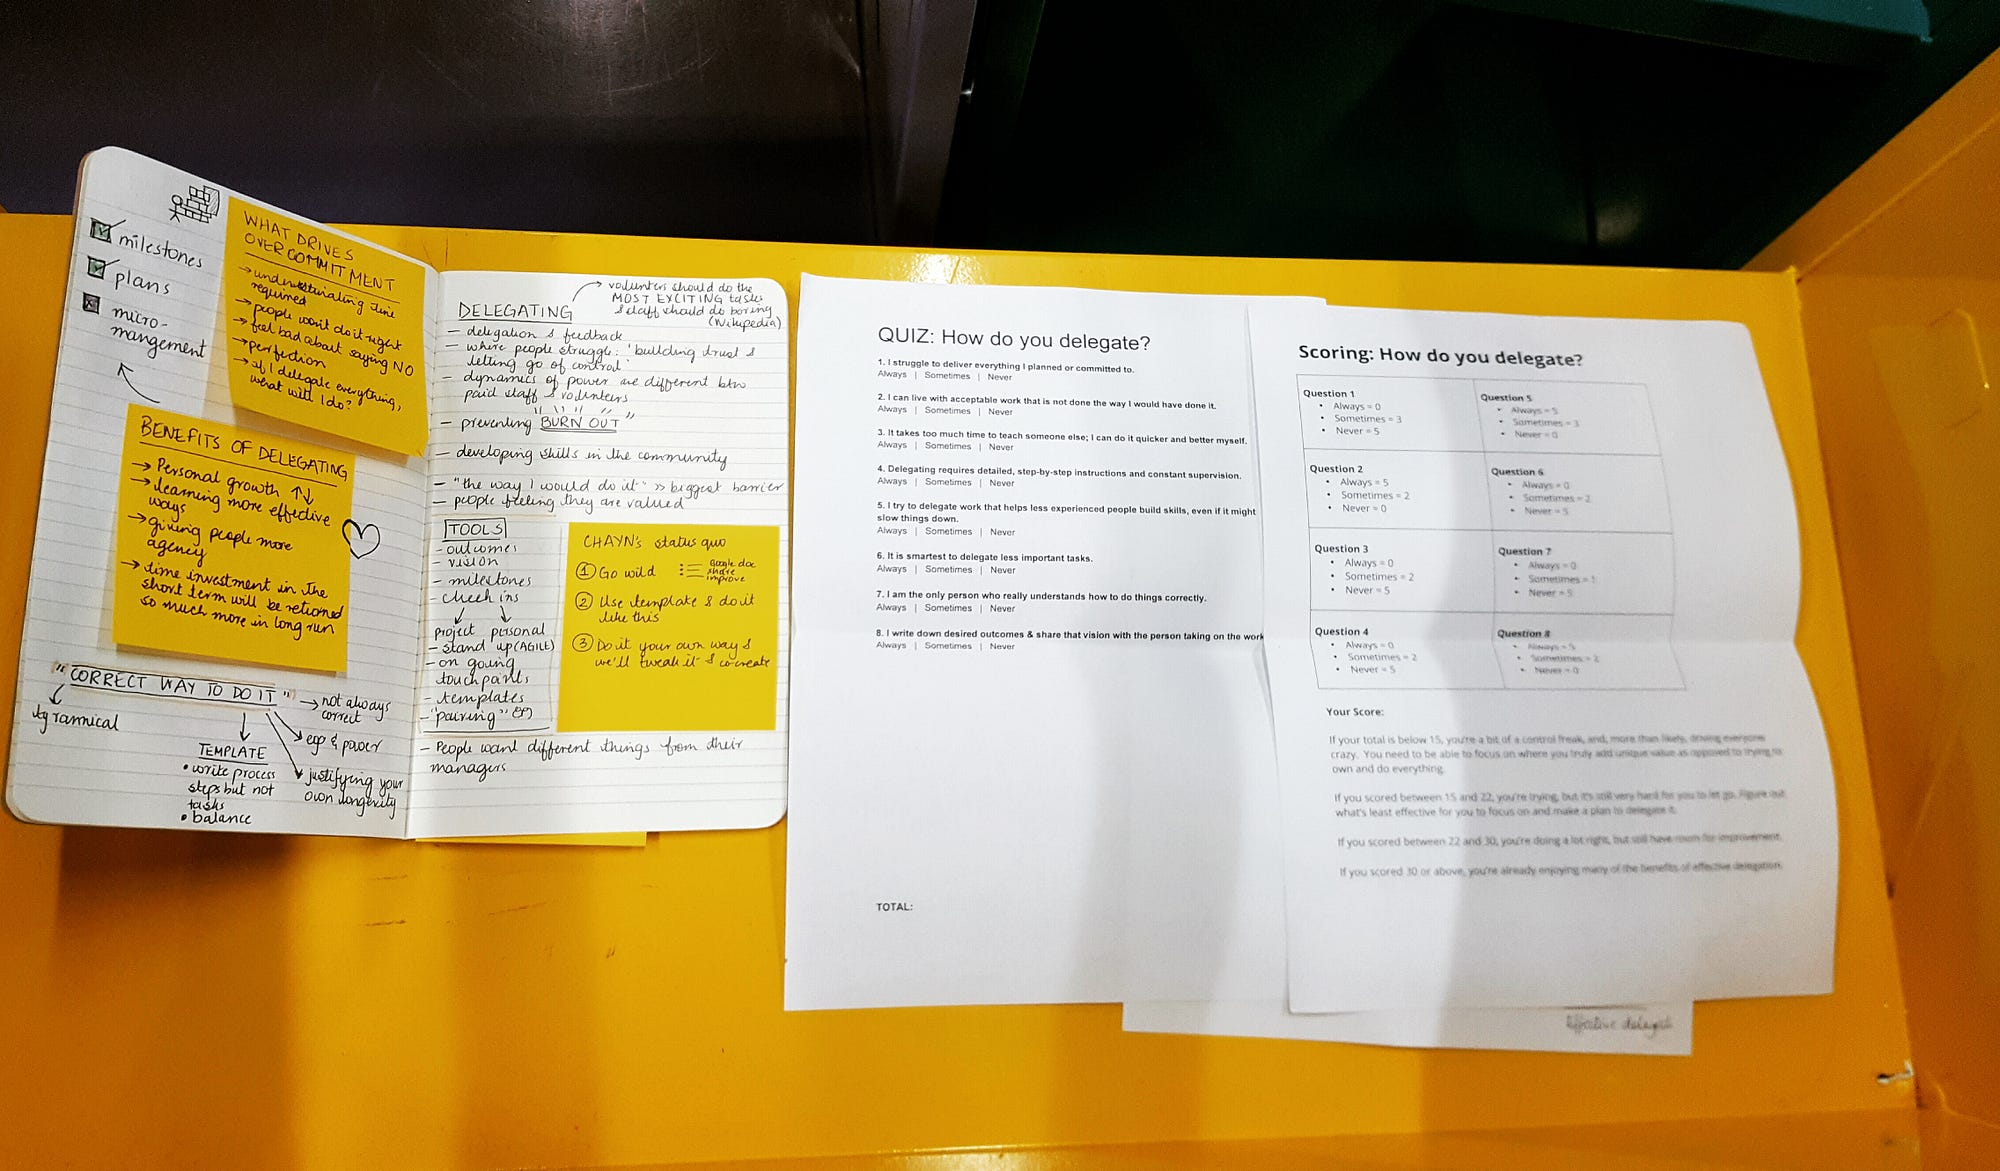 milestones
plans
micro-
mangement
WHAT DRIVES
OVERCOMMITMENT
→ underestimating time
required
→ people won't do it right
→ feel bad about saying NO
→ perfection
→ if I delegate everything,
what will I do?
BENEFITS OF DELEGATING
→ Personal growth ↑↓
→ learning more effective
ways
→ giving people more
agency
→ time investment in the
short term will be returned
so much more in long run
"CORRECT WAY TO DO IT"
→ not always
correct
tyrannical
ego & power
TEMPLATE
• write process
steps but not
tasks
• balance
justifying your
own longevity
DELEGATING
→ volunters should do the
MOST EXCITING tasks
& staff should do boring
(Wikipedia)
- delegation & feedback
- where people struggle: 'building trust &
letting go of control'
- dynamics of power are different btw
paid staff & volunteers
- preventing BURN OUT
- developing skills in the community
- "the way I would do it" >> biggest barrier
- people feeling they are valued
TOOLS
- outcomes
- vision
- milestones
- check ins
project personal
- stand up (AGILE)
- on going
touchpoints
- templates
- "pairing"
CHAYN's status quo
① Go wild
Google doc
share
improve
② Use template & do it
like this
③ Do it your own way &
we'll tweak it & co-create
- People want different things from their
managers
QUIZ: How do you delegate?
1. I struggle to deliver everything I planned or committed to.
Always | Sometimes | Never
2. I can live with acceptable work that is not done the way I would have done it.
Always | Sometimes | Never
3. It takes too much time to teach someone else; I can do it quicker and better myself.
Always | Sometimes | Never
4. Delegating requires detailed, step-by-step instructions and constant supervision.
Always | Sometimes | Never
5. I try to delegate work that helps less experienced people build skills, even if it might
slow things down.
Always | Sometimes | Never
6. It is smartest to delegate less important tasks.
Always | Sometimes | Never
7. I am the only person who really understands how to do things correctly.
Always | Sometimes | Never
8. I write down desired outcomes & share that vision with the person taking on the work
Always | Sometimes | Never
TOTAL:
Scoring: How do you delegate?
Question 1
• Always = 0
• Sometimes = 3
• Never = 5
Question 5
• Always = 5
• Sometimes = 3
• Never = 0
Question 2
• Always = 5
• Sometimes = 2
• Never = 0
Question 6
• Always = 0
• Sometimes = 2
• Never = 5
Question 3
• Always = 0
• Sometimes = 2
• Never = 5
Question 7
• Always = 0
• Sometimes = 1
• Never = 5
Question 4
• Always = 0
• Sometimes = 2
• Never = 5
Question 8
• Always = 5
• Sometimes = 2
• Never = 0
Your Score:
If your total is below 15, you're a bit of a control freak, and, more than likely, driving everyone
crazy. You need to be able to focus on where you truly add unique value as opposed to trying to
own and do everything.
If you scored between 15 and 22, you're trying, but it's still very hard for you to let go. Figure out
what's least effective for you to focus on and make a plan to delegate it.
If you scored between 22 and 30, you're doing a lot right, but still have room for improvement.
If you scored 30 or above, you're already enjoying many of the benefits of effective delegation.
Effective